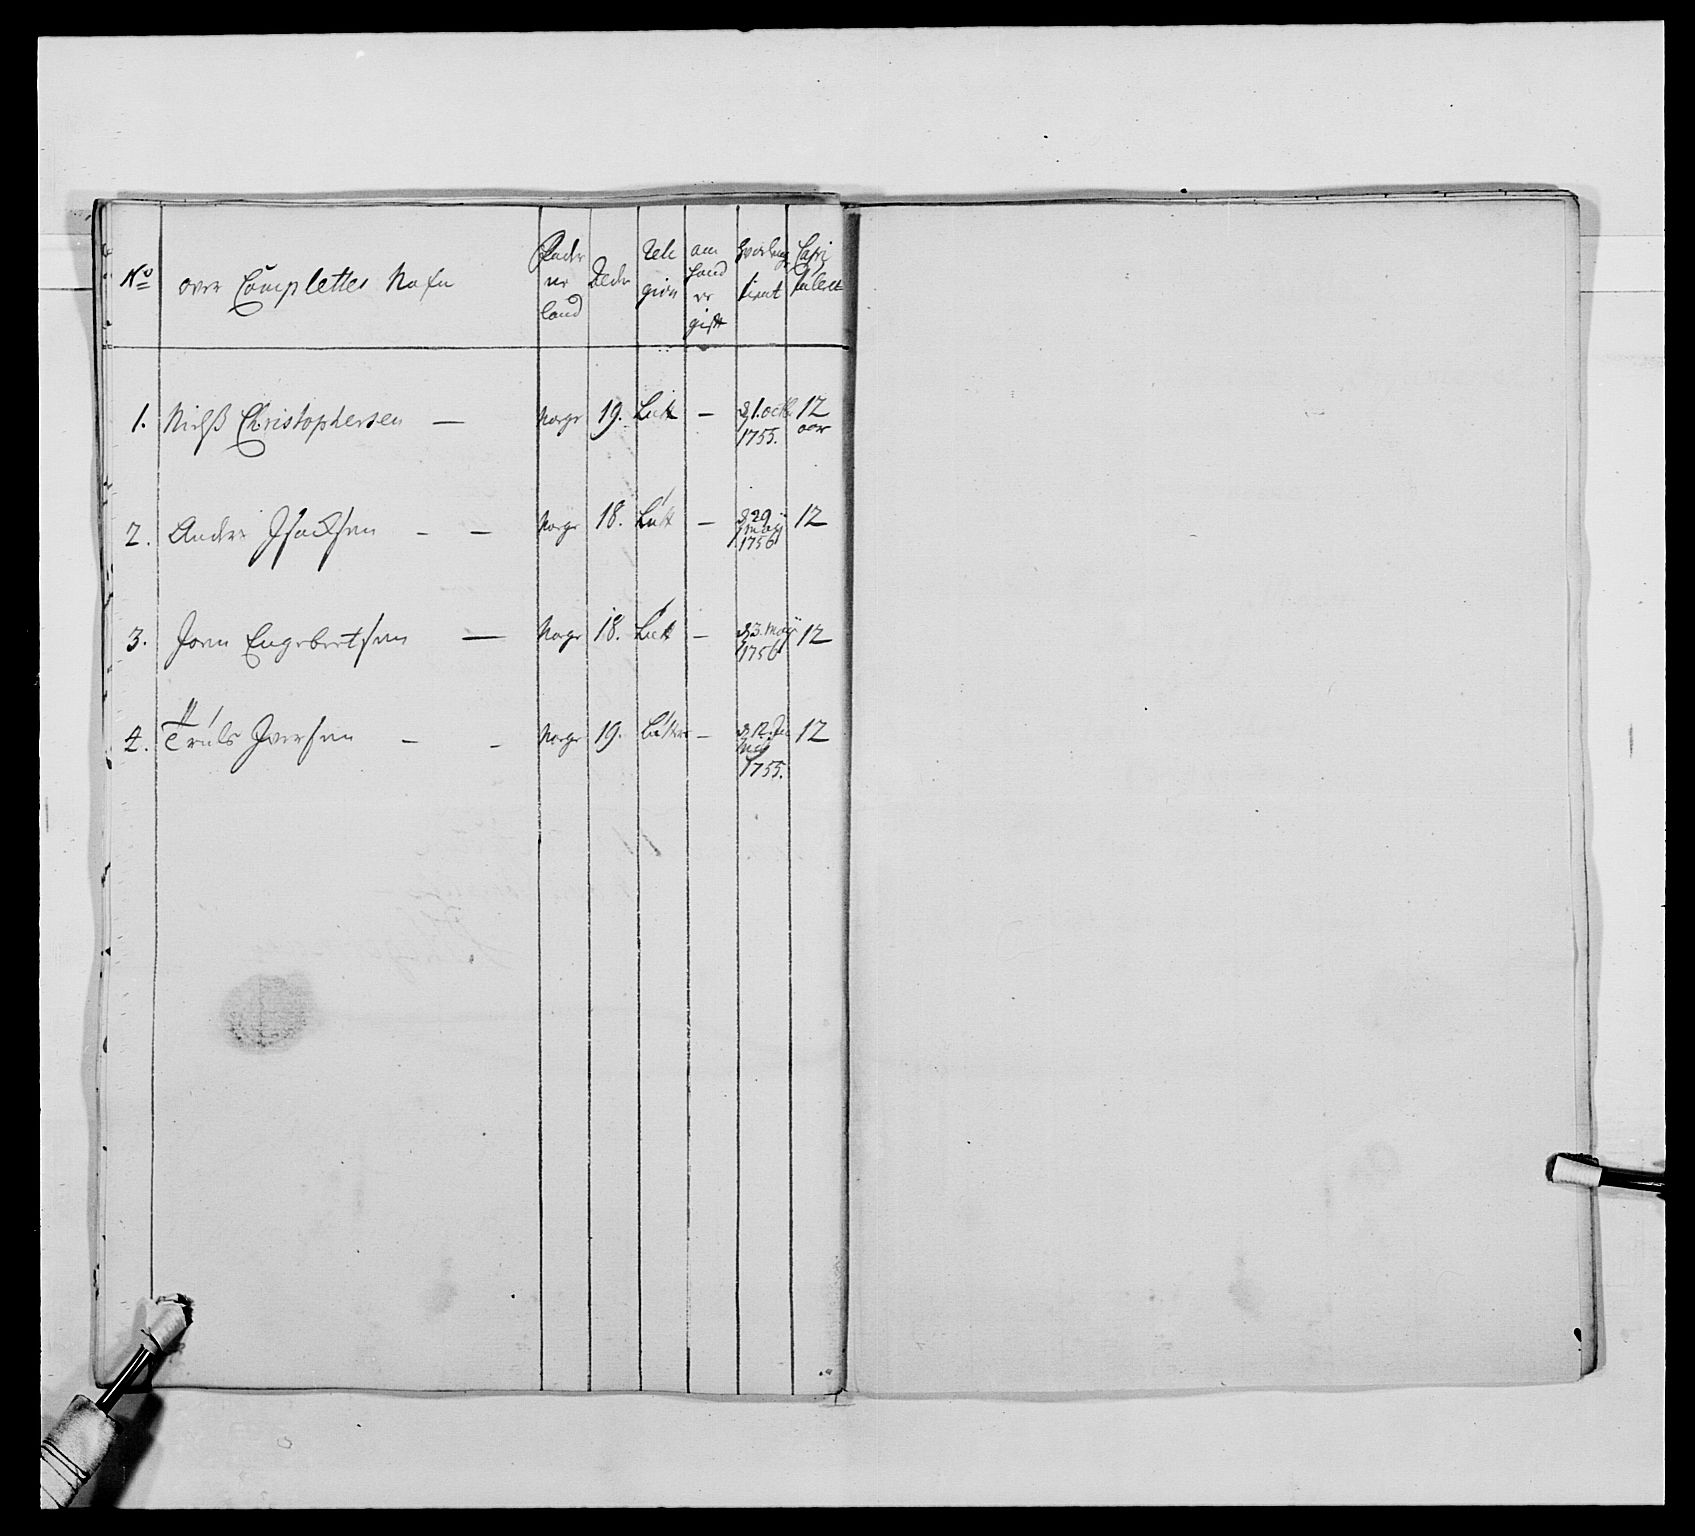 No over Complettes Nafn Fæder ne land Alder Reli gion om hand er gift hvorlenge tient Capi tulert
1. Nielß Christophersen — Norge 19. Luth — d 1. octb. 1755. 12 aar
2. Anders Isacksen — — Norge 18. Luth — d 29 maÿ 1756 12
3. Joen Engebretsen — Norge 18. Luth — d 3. maÿ 1756 12
4. Truls Iversen — — Norge 19. Luther — d 12. 1755. 12